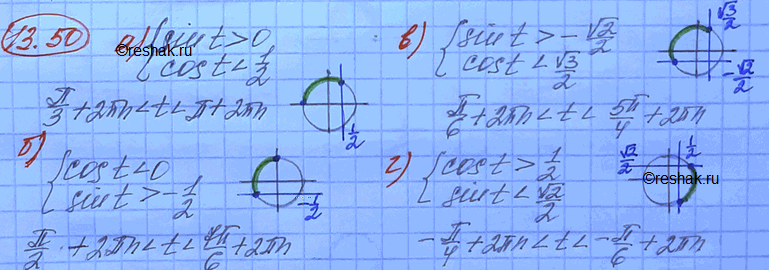 13.50
а) { sin t > 0
cos t < 1/2
π/3 + 2πn < t < π + 2πn
1/2
б) { cos t < 0
sin t > -1/2
-1/2
π/2 + 2πn < t < 7π/6 + 2πn
в) { sin t > -√2/2
cos t < √3/2
√3/2
-√2/2
π/6 + 2πn < t < 5π/4 + 2πn
г) { cos t > 1/2
sin t < √2/2
√2/2
1/2
-π/4 + 2πn < t < -π/6 + 2πn
©reshak.ru
©reshak.ru